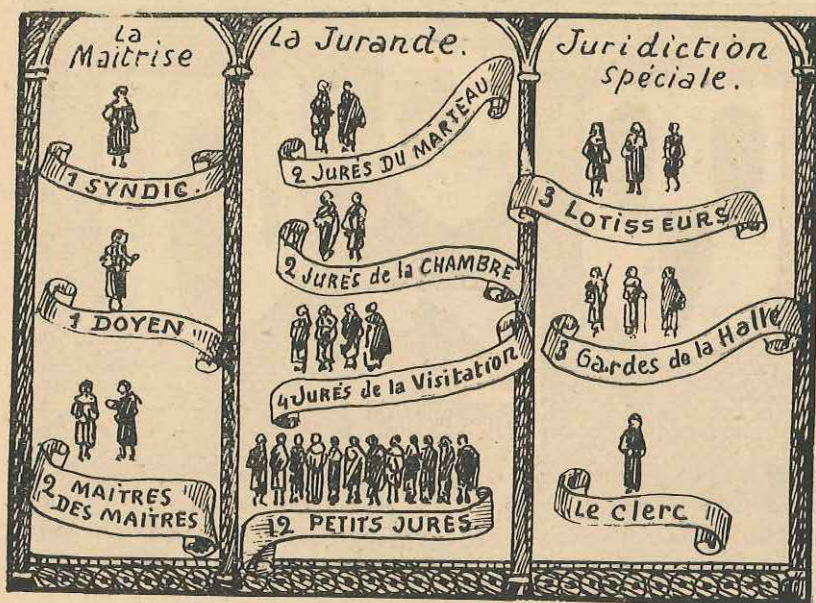 La
Maitrise
1 SYNDIC.
1 DOYEN
2 MAITRES
DES MAITRES
La Jurande.
2 JURÉS DU MARTEAU
2 JURÉS de la CHAMBRE
4 JURÉS de la Visitation
12 PETITS JURÉS
Juridiction
spéciale.
3 LOTISSEURS
3 Gardes de la Halle
Le clerc